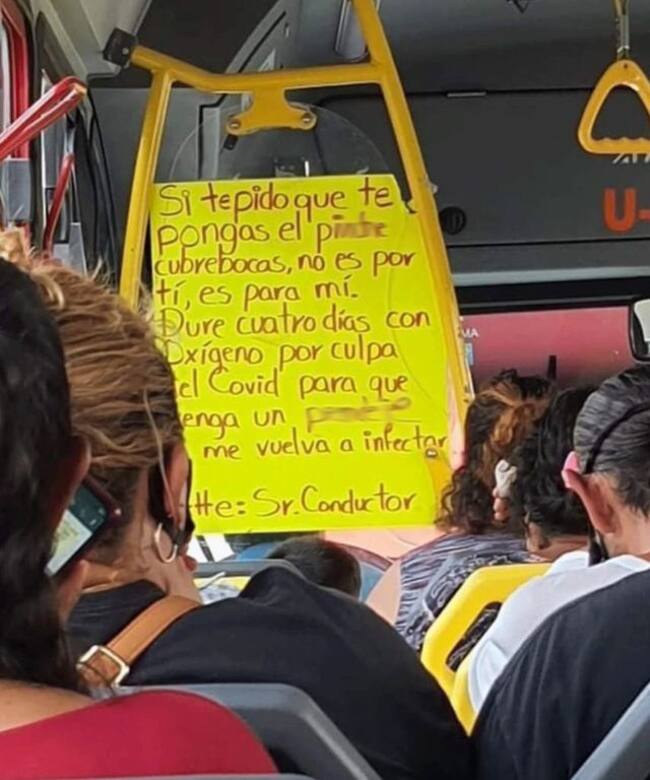 Si te pido que te
pongas el
cubrebocas, no es por
tí, es para mí.
Dure cuatro días con
Oxígeno por culpa
el Covid para que
enga un
me vuelva a infectar
tte: Sr. Conductor
U-
MA